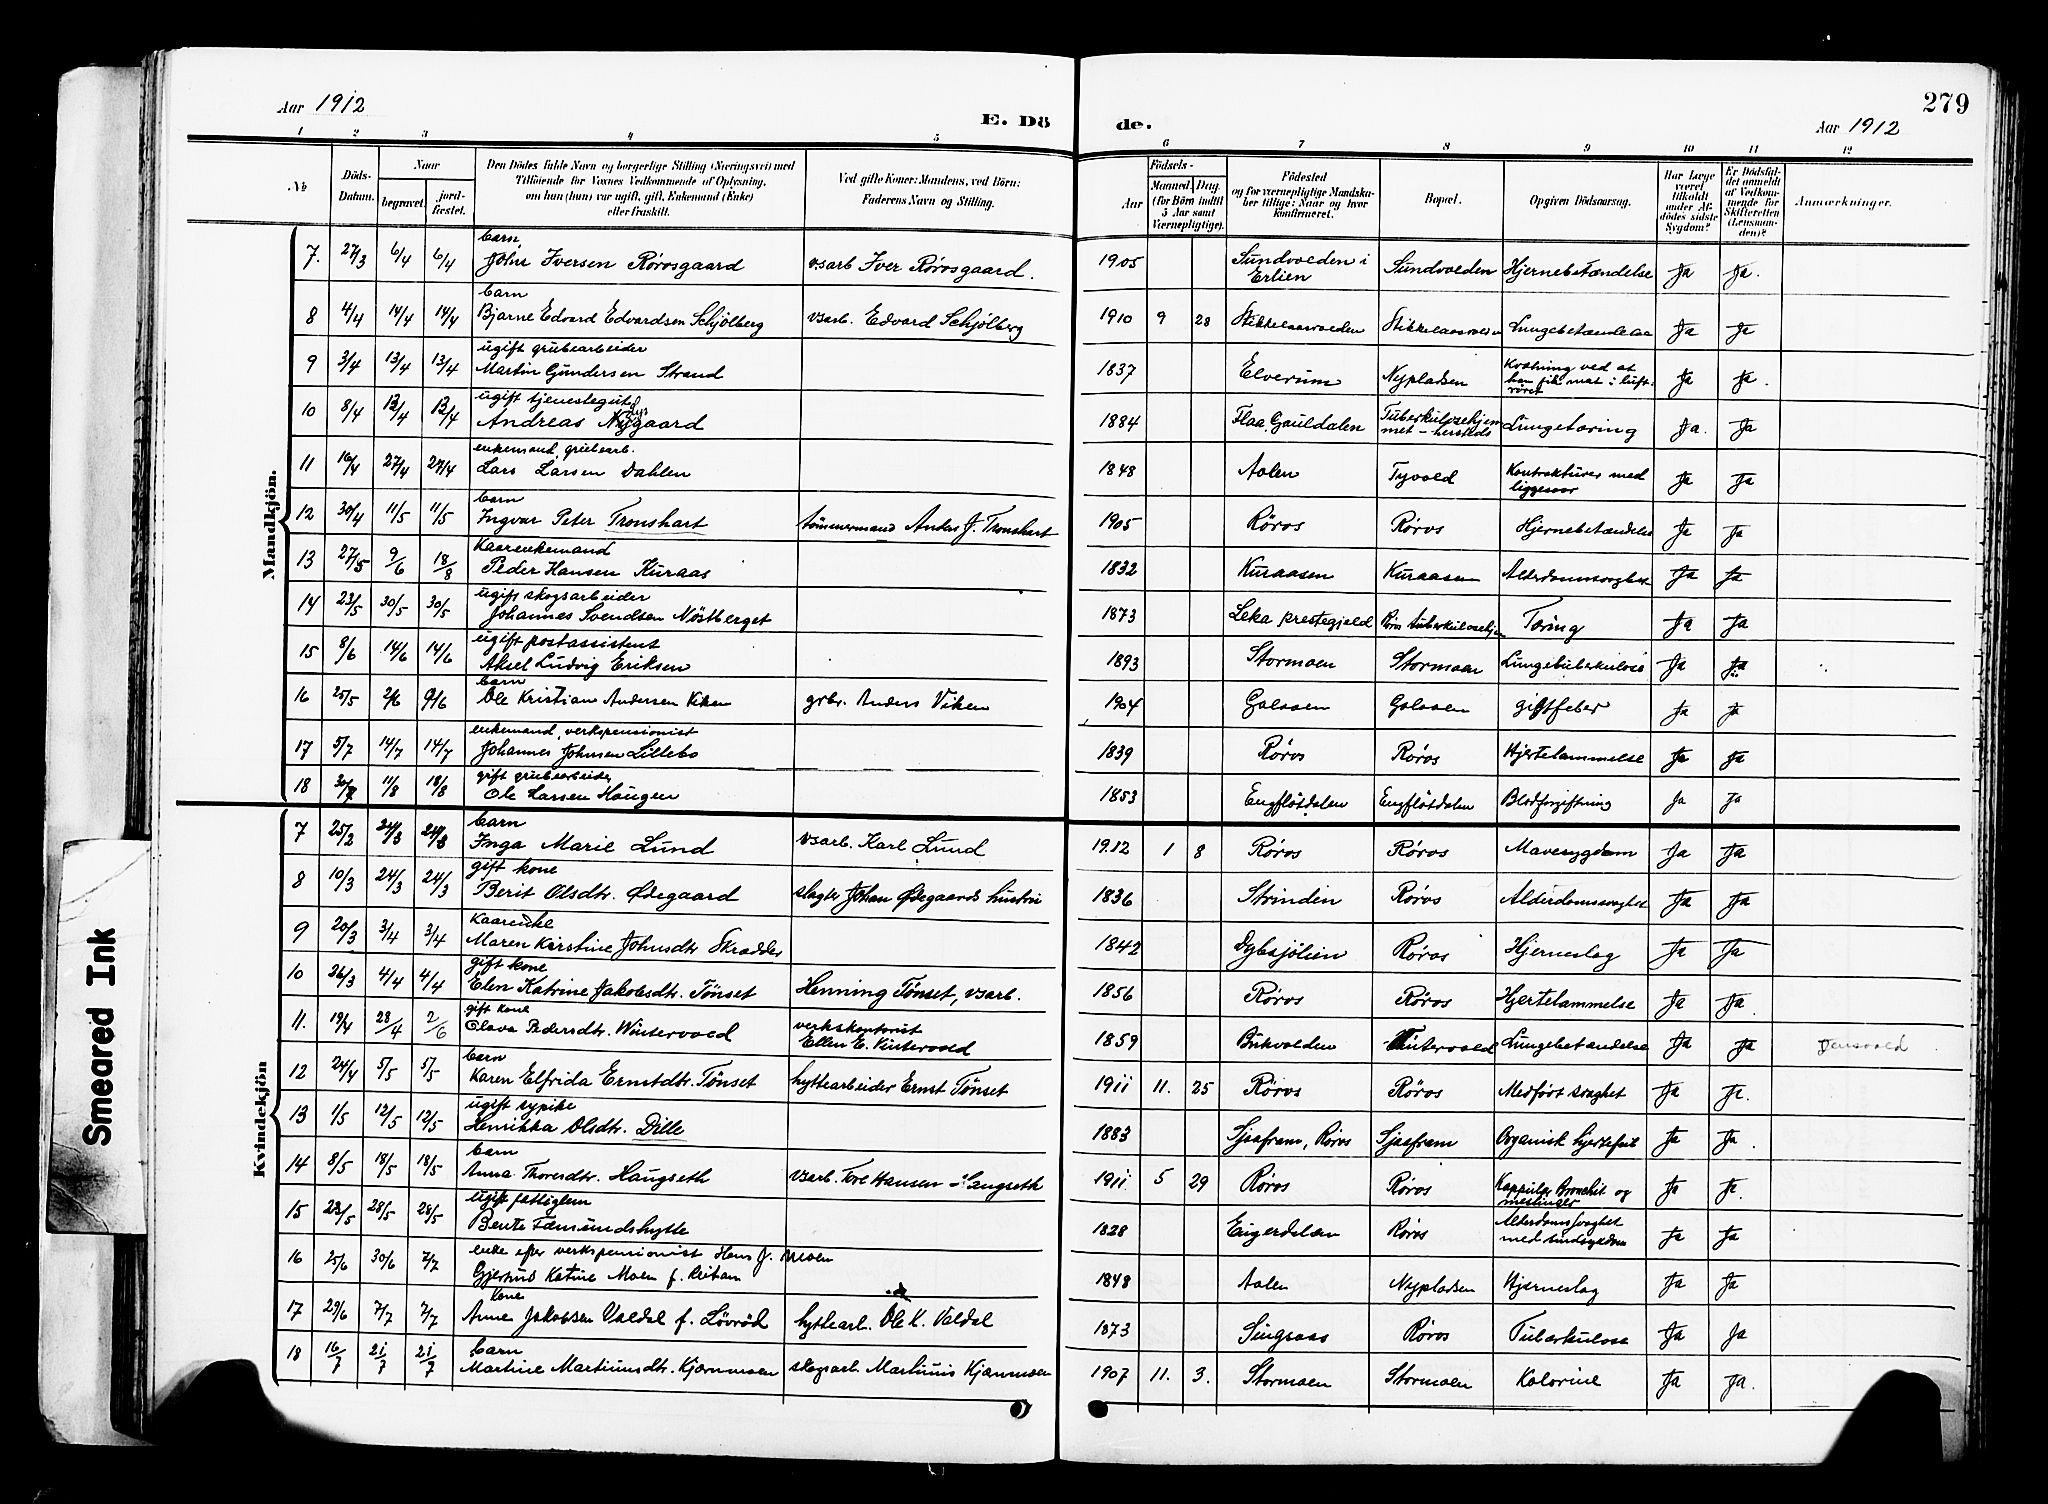 Aar 1912
E. Dö
de.
Aar 1912
279
1 2 3 4 5 6 7 8 9 10 11 12
No
Döds-Datum.
Naar
begravet.
jord-fæstet.
Den Dödes fulde Navn og borgerlige Stilling (Næringsvei) med
Tilföiende for Voxnes Vedkommende af Oplysning,
om hun (hun) var ugift, gift, Enkemand (Enke)
eller fraskilt.
Ved gifte Koner: Mandens, ved Börn:
Faderens Navn og Stilling.
Födsels-
Aar
Maaned. Dag.
(for Börn indtil
5 Aar samt
Værnepligtige).
Födested
og for værnepligtige Mandska-
ber tillige: Naar og hvor
konfirmeret.
Bopæl.
Opgiven Dödsaarsag.
Har Læge
været
tilkaldt
under Af-
dödes sidste
Sygdom?
Er Dödsfal-
det anmeldt
af Vedkom-
mende for
Skifteretten
(Lensman-
den)?
Anmærkninger.
Mandkjön.
7. 27/3 6/4 6/4 barn John Iversen Rørosgaard vsarb Iver Rørosgaard. 1905 Sundvolden i Erlien Sundvolden Hjernebetændelse Ja Ja.
8 4/4 14/4 14/4 barn Bjarne Edvard Edvardsen Schjølberg vsarb. Edvard Schjølberg 1910 9 28 Stikkelaasvolden Lungebetændelse Ja Ja
9 3/4 13/4 13/4 ugift grubearbeider Martin Gundersen Strand 1837 Elverum Nypladsen Kvælning ved at han fik mat i luft-röret Ja Ja.
10 8/4 13/4 13/4 ugift tjenestegut Andreas 1884 Flaa, Gauldalen Tuberkulosehjemmet Lungetæring Ja. Ja
11 16/4 27/4 27/4 enkemand, grubearb. Lars Larsen Dahlen 1848 Aalen Tyvold Kontrakturer med liggesaar Ja Ja
12 30/4 11/5 11/5 barn Ingvar Peter Tronshart tømmermand Anders J. Tronshart 1905 Röros Røros Hjernebetændelse Ja Ja
13 27/5 9/6 18/8 Kaarenkemand Peder Hansen Kuraas 1832 Kuraasen Kuraasen Alderdomssvaghet Ja Ja
14 23/5 30/5 30/5 ugift skogsarbeider Johannes Svendsen Nöstberget 1873 Leka prestegjeld Røros tuberkulosehjem Tæring Ja Ja
15 8/6 14/6 14/6 ugift postassistent Aksel Ludvig Eriksen 1893 Stormoen Stormoen Lungetuberkulose Ja Ja
16 25/5 2/6 9/6 barn Ole Kristian Andersen Viken grbr. Anders Viken 1904 Galaaen Galaaen giftfeber Ja Ja
17 5/7 14/7 14/7 enkemand, verkspensionist Johannes Johnsen Lillebo 1839 Røros Røros Hjertelammelse Ja Ja
18 30/7 11/8 18/8 gift grubearbeider Ole Larsen Haugen 1853 Engflötdalen Engflötdalen Blodforgiftning Ja Ja
Kvindekjön
7 25/2 24/3 24/3 barn Inga Marie Lund vsarb. Karl Lund 1912 1 8 Røros Røros Mavesygdom Ja Ja
8 10/3 24/3 24/3 gift kone Berit Olsdtr. Ødegaard slagter Johan Ødegaards hustru 1836 Strinden Røros Alderdomssvaghet Ja Ja
9 20/3 3/4 3/4 Kaarenke Maren Kirstine Johnsdtr Skradder 1842 Dybsjölien Røros Hjerneslag Ja Ja
10 26/3 4/4 4/4 gift kone Elen Katrine Jakobsdtr. Tönset Henning Tönset, vsarb. 1856 Røros Röros Hjertelammelse Ja Ja.
11. 19/4 28/4 2/6 gift kone Olava Pedersdtr. Wintervold verkskontorist Ellen E. Vintervold 1859 Bukvolden Vintervold Lungebetændelse Ja Ja
12 24/4 5/5 5/5 barn Karen Elfrida Ernstdtr. Tönset hyttearbeider Ernst Tönset 1911 11. 25 Röros Röros Medfört svaghet Ja Ja.
13 1/5 12/5 12/5 ugift sypike Henrikka Olsdtr. Dille 1883 Sjaafram, Röros Sjaafram Organisk hjertefeil Ja Ja.
14 8/5 18/5 18/5 barn Anna Thoresdtr. Haugseth vsarb. Tore Hansen Haugseth 1911. 5 29 Røros Røros Kappilær Bronchit og meslinger Ja Ja.
15 28/5 28/5 ugift fattiglem Berite Fæmundshytte 1828 Engerdalen Røros Alderdomssvaghet med sindssygdom Ja Ja
16 25/6 30/6 7/7 enke efter verkspensionist Hans J. Moen Gjertrud Katrine Moen f. Reitan 1848 Aalen Nypladsen Hjerneslag Ja Ja
17 29/6 7/7 7/7 Kone Anne Jakobsen Valdal f. Lövröd hyttearb. Ole K. Valdal 1873 Singsaas Røros Tuberkulose Ja Ja
18 16/7 21/7 21/7 barn Martine Martinusdtr. Kjærnmoen skogsarb. Martinus Kjærnmoen 1907 11. 3. Stormoen Stormoen Kolorine Ja Ja.
Smeared Ink